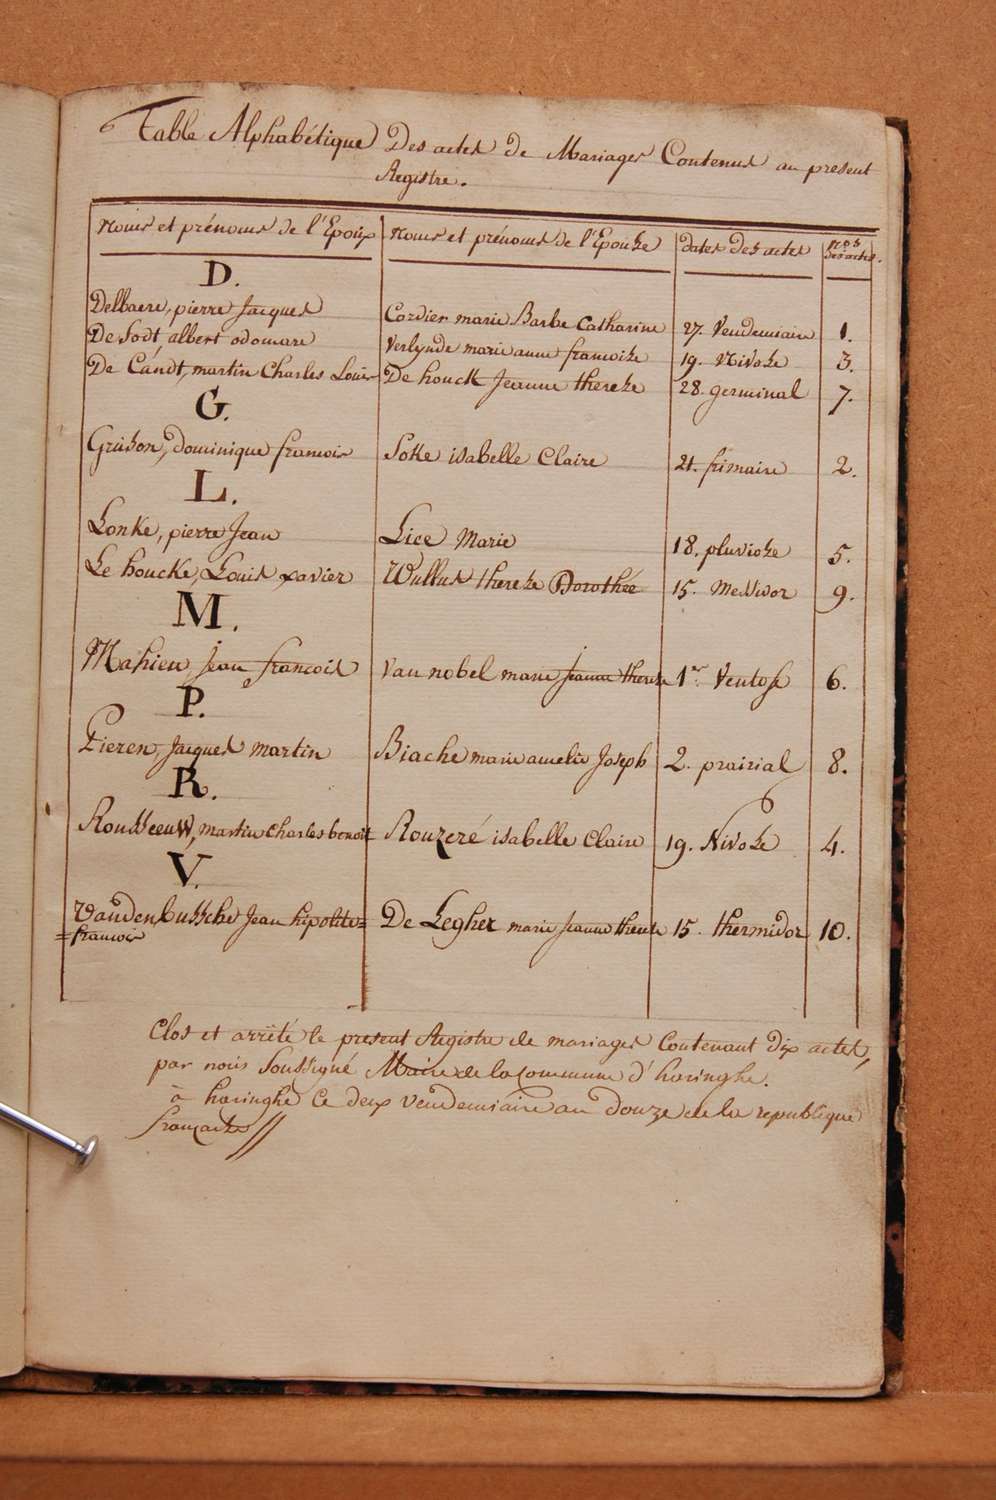 Table Alphabétique Des actes de Mariages Contenus au present
Registre.
Noms et prénoms de l'Epoux Noms et prénoms de l'Epouse dates des actes Nos des actes.
D.
Delbaere, pierre Jacques Cordier marie Barbe Catharine 27. Vendemiaire 1.
De Sodt, albert odomare Verlynde marie anne francoise 19. Nivose 3.
De Candt, martin Charles Louis De houck Jeanne therese 28. germinal 7.
G.
Gruson, dominique francois Soke isabelle Claire 21. frimaire 2.
L.
Lonke, pierre Jean Liee Marie 18. pluviose 5.
Le houcke, Louis xavier Wullus therese Dorothée 15. Messidor 9.
M.
Mahieu jean francois van nobel marie jeanne therese 1er Ventose 6.
P.
Pieren, Jacques martin Biache marie amelie Joseph 2. prairial 8.
R.
Rousseeuw, martin charles benoit Rouzeré isabelle Claire 19. Nivose 4.
V.
Vandenbussche Jean hipolite= De Legher marie Jeanne therese 15. thermidor 10.
=francois
Clos et arrêté le present Registre de mariages Contenant dix actes,
par nous Soussigné Maire de la Commune d'haringhe.
à haringhe Ce deux vendemiaire an douze de la republique
francaise //